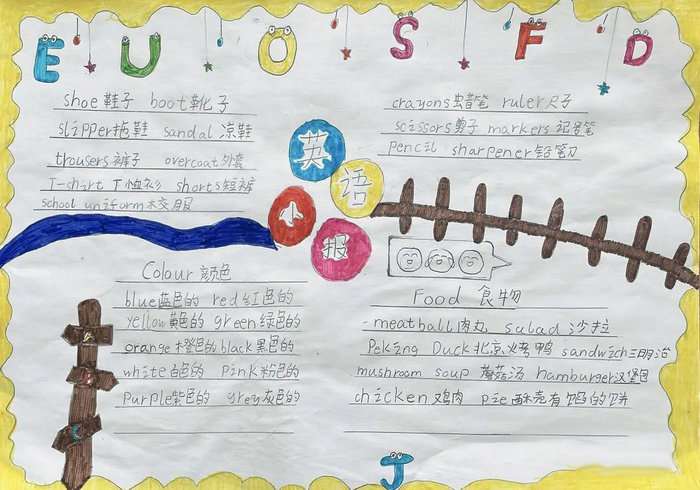 E U O S F D
shoe 鞋子 boot 靴子
slipper 拖鞋 sandal 凉鞋
trousers 裤子 overcoat 外套
T-shirt T恤衫 shorts 短裤
school uniform 校服
crayons 蜡笔 ruler 尺子
scissors 剪子 markers 记号笔
pencil sharpener 铅笔刀
英语
小报
Colour 颜色
blue 蓝色的 red 红色的
yellow 黄色的 green 绿色的
orange 橙色的 black 黑色的
white 白色的 pink 粉色的
purple 紫色的 grey 灰色的
Food 食物
meatball 肉丸 salad 沙拉
Peking Duck 北京烤鸭 sandwich 三明治
mushroom soup 蘑菇汤 hamburger 汉堡包
chicken 鸡肉 pie 酥壳有馅的饼
J